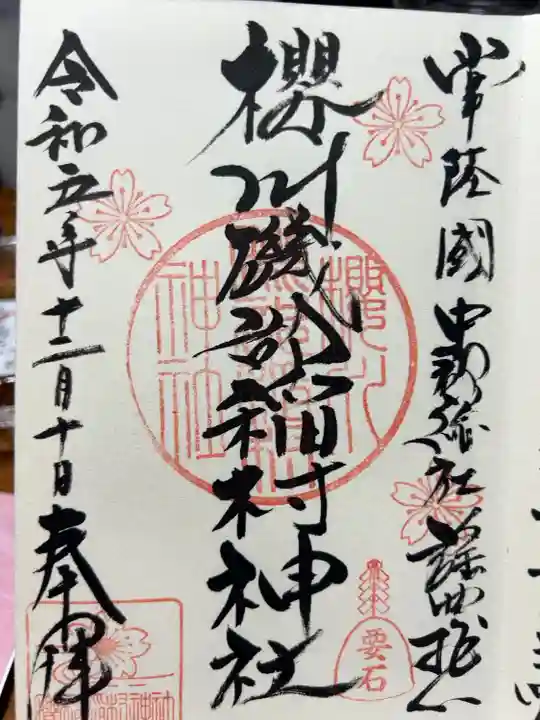 常陸國
謡曲
櫻川磯部稲村神社
令和五年十二月十日 奉拝
櫻川
神社
要石